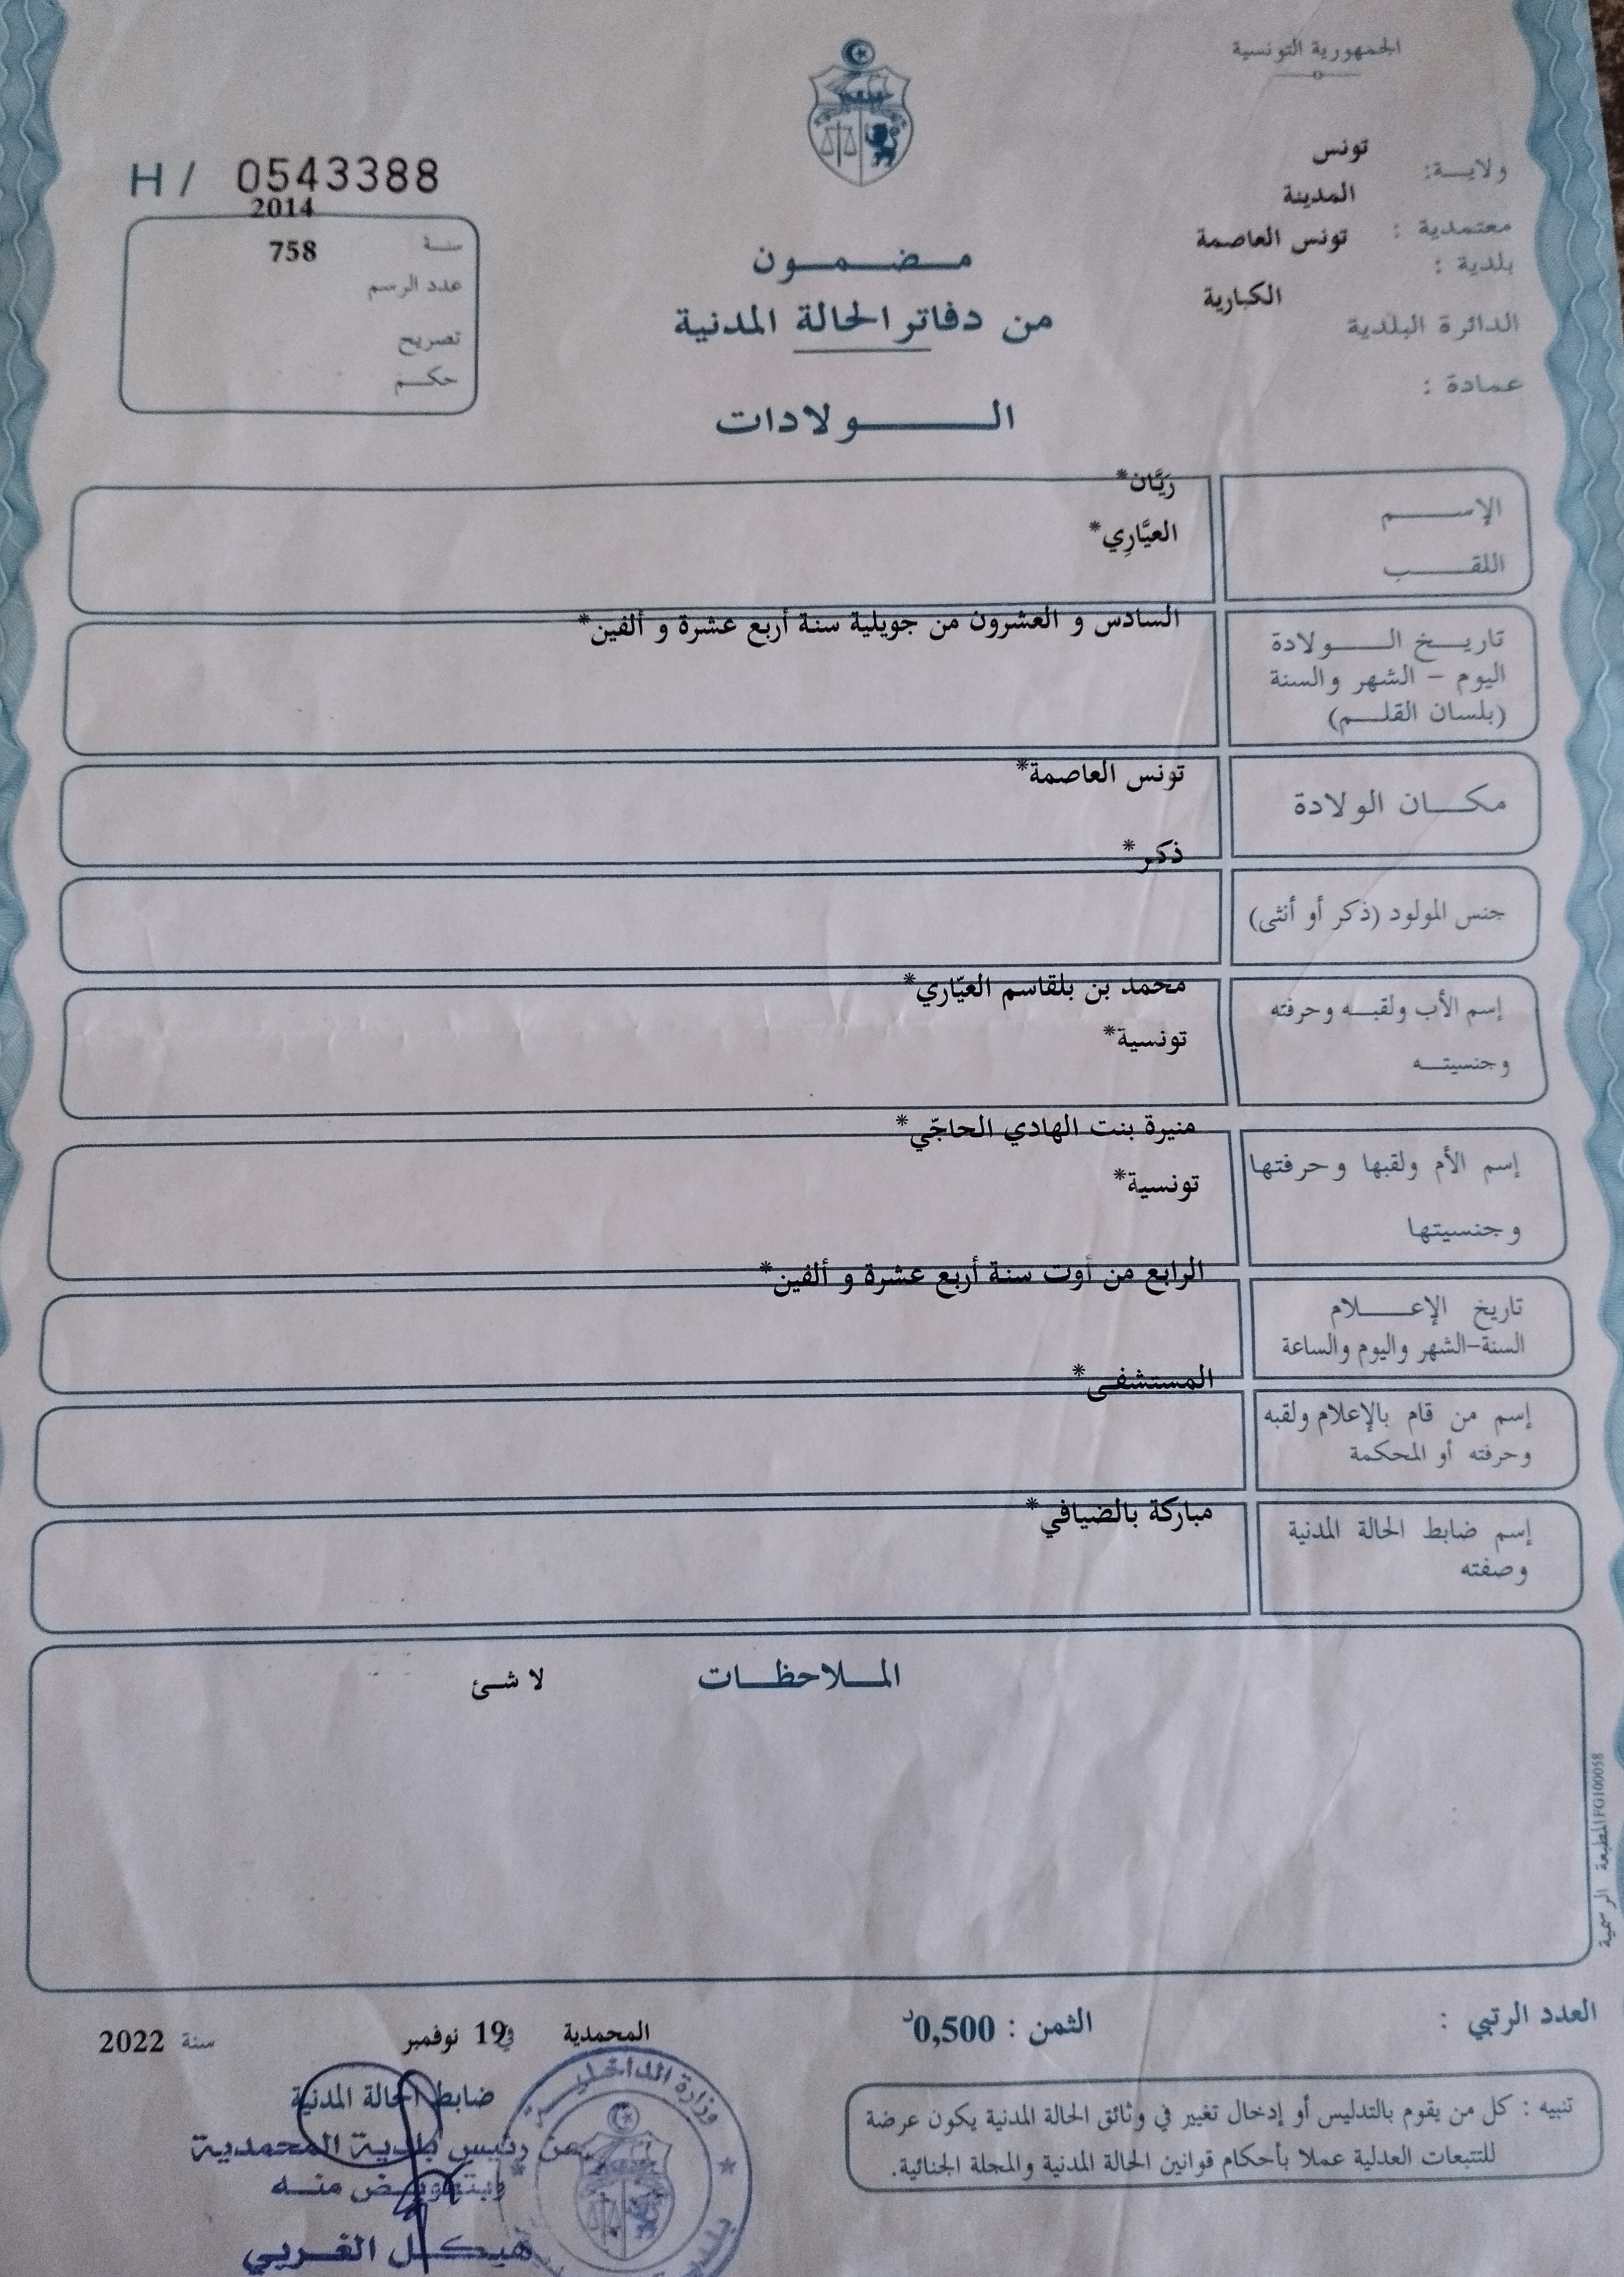 الجمهورية التونسية
ولايـــة: تونس
معتمدية : المدينة
بلدية : تونس العاصمة
الدائرة البلدية الكبارية
عمادة :
H / 0543388
سنة 2014
عدد الرسم 758
تصريح
حكم
مـضـمـون
من دفاتر الحالة المدنية
الـولادات
الإسـم رَيَّان*
اللقـب العيَّارِي*
تاريـخ الـولادة السادس و العشرون من جويلية سنة أربع عشرة و ألفين*
اليوم – الشهر والسنة
(بلسان القلـم)
مكـان الولادة تونس العاصمة*
جنس المولود (ذكر أو أنثى) ذكر*
إسم الأب ولقبـه وحرفته محمد بن بلقاسم العيّاري*
وجنسيتـه تونسية*
إسم الأم ولقبها وحرفتها منيرة بنت الهادي الحاجّي*
وجنسيتها تونسية*
تاريخ الإعـلام الرابع من أوت سنة أربع عشرة و ألفين*
السنة-الشهر واليوم والساعة
إسم من قام بالإعلام ولقبه المستشفى*
وحرفته أو المحكمة
إسم ضابط الحالة المدنية مباركة بالضيافي*
وصفته
المـلاحظـات لا شئ
المطبعة الرسمية FG100058
العدد الرتبي :
الثمن : 0,500د
المحمدية في 19 نوفمبر سنة 2022
ضابط الحالة المدنية
عن رئيس بلدية المحمدية
وبتفويض منه
هيكل الغربي
وزارة الداخلية
تنبيه : كل من يقوم بالتدليس أو إدخال تغيير في وثائق الحالة المدنية يكون عرضة
للتتبعات العدلية عملا بأحكام قوانين الحالة المدنية والمجلة الجنائية.